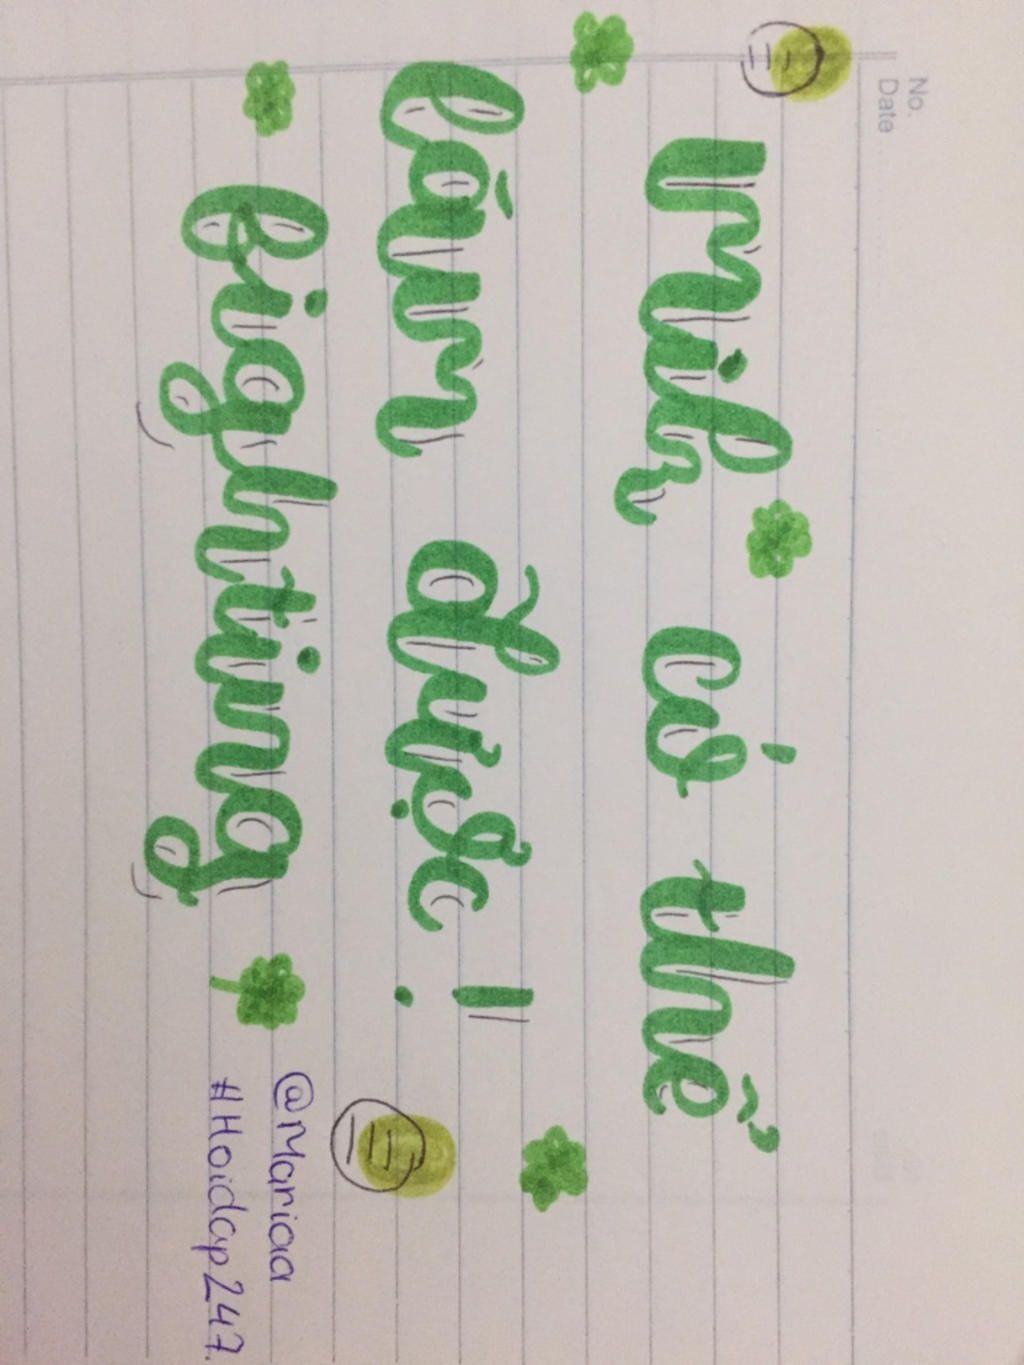 No.
Date
mih có thể
làm được !
fighting
@Mariaa
#Hoidap247.